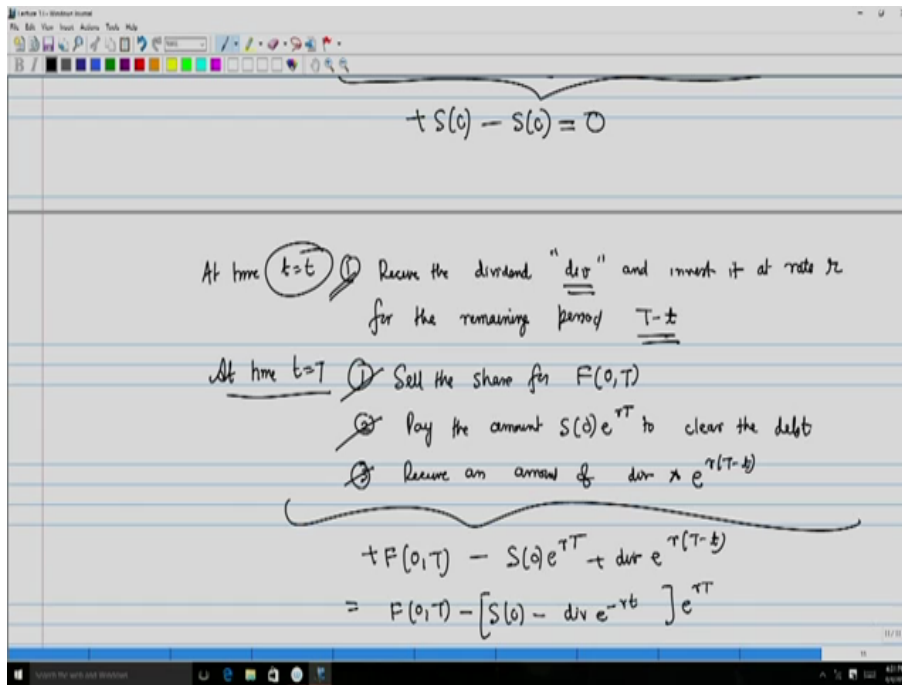 Lecture 11 - Windows Journal
File Edit View Insert Actions Tools Help
B I
+ S(0) - S(0) = 0
At time t=t ① Receive the dividend "div" and invest it at rate r
for the remaining period T-t
At time t=T ① Sell the share for F(0,T)
② Pay the amount S(0)e^{rT} to clear the debt
③ Receive an amount of div * e^{r(T-t)}
+ F(0,T) - S(0)e^{rT} + div e^{r(T-t)}
= F(0,T) - [S(0) - div e^{-rt}] e^{rT}
11/11
Search the web and Windows